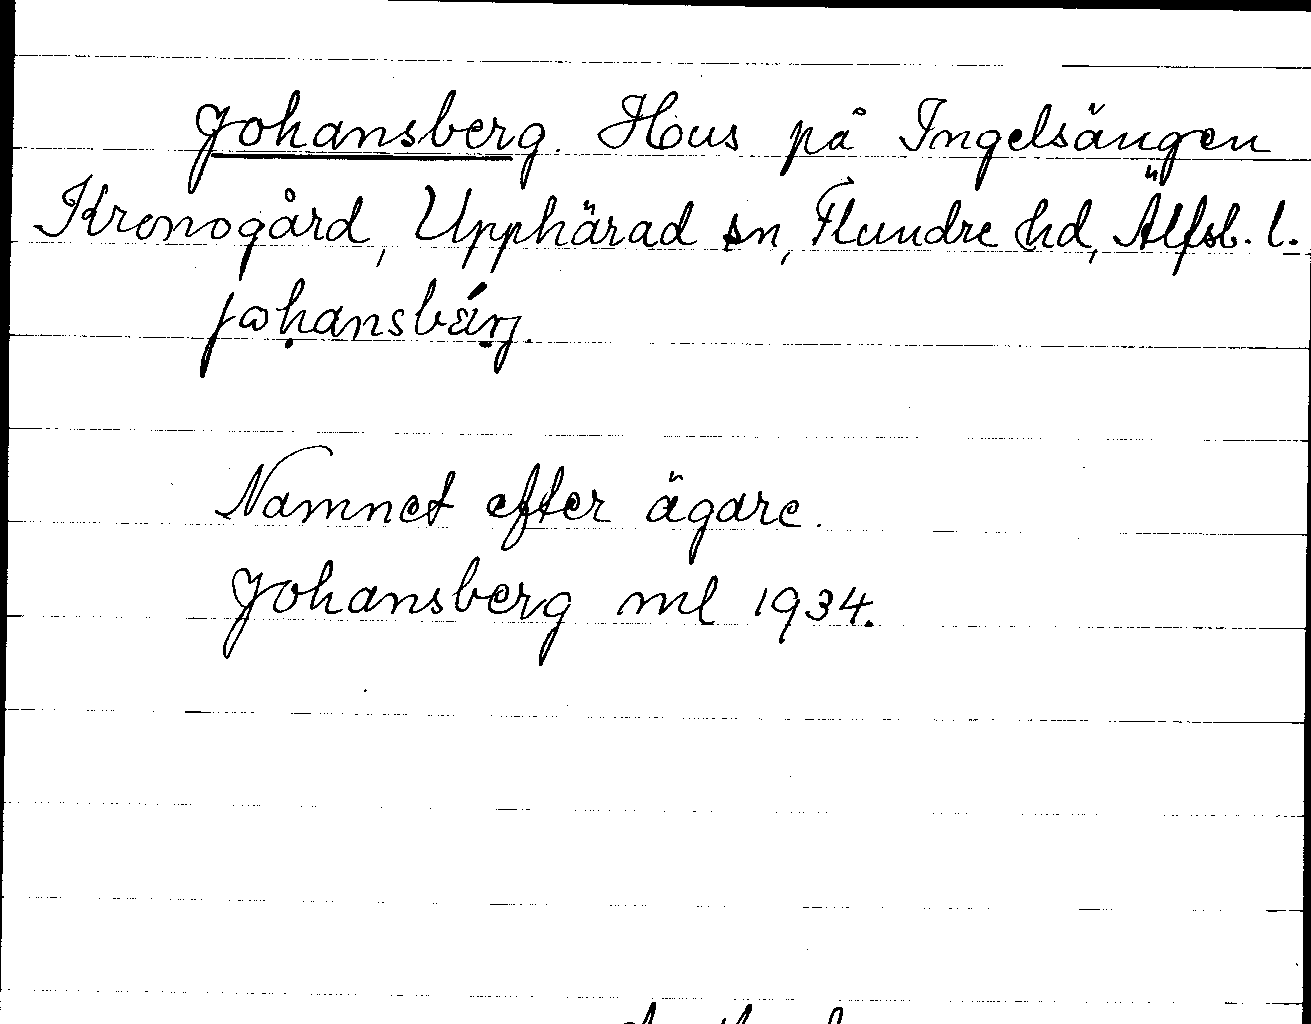 Johansberg. Hus på Ingelsängen
Kronogård, Upphärad sn, Flundre hd, Älfsb. l.
johansbärj.
Namnet efter ägare.
Johansberg ml 1934.